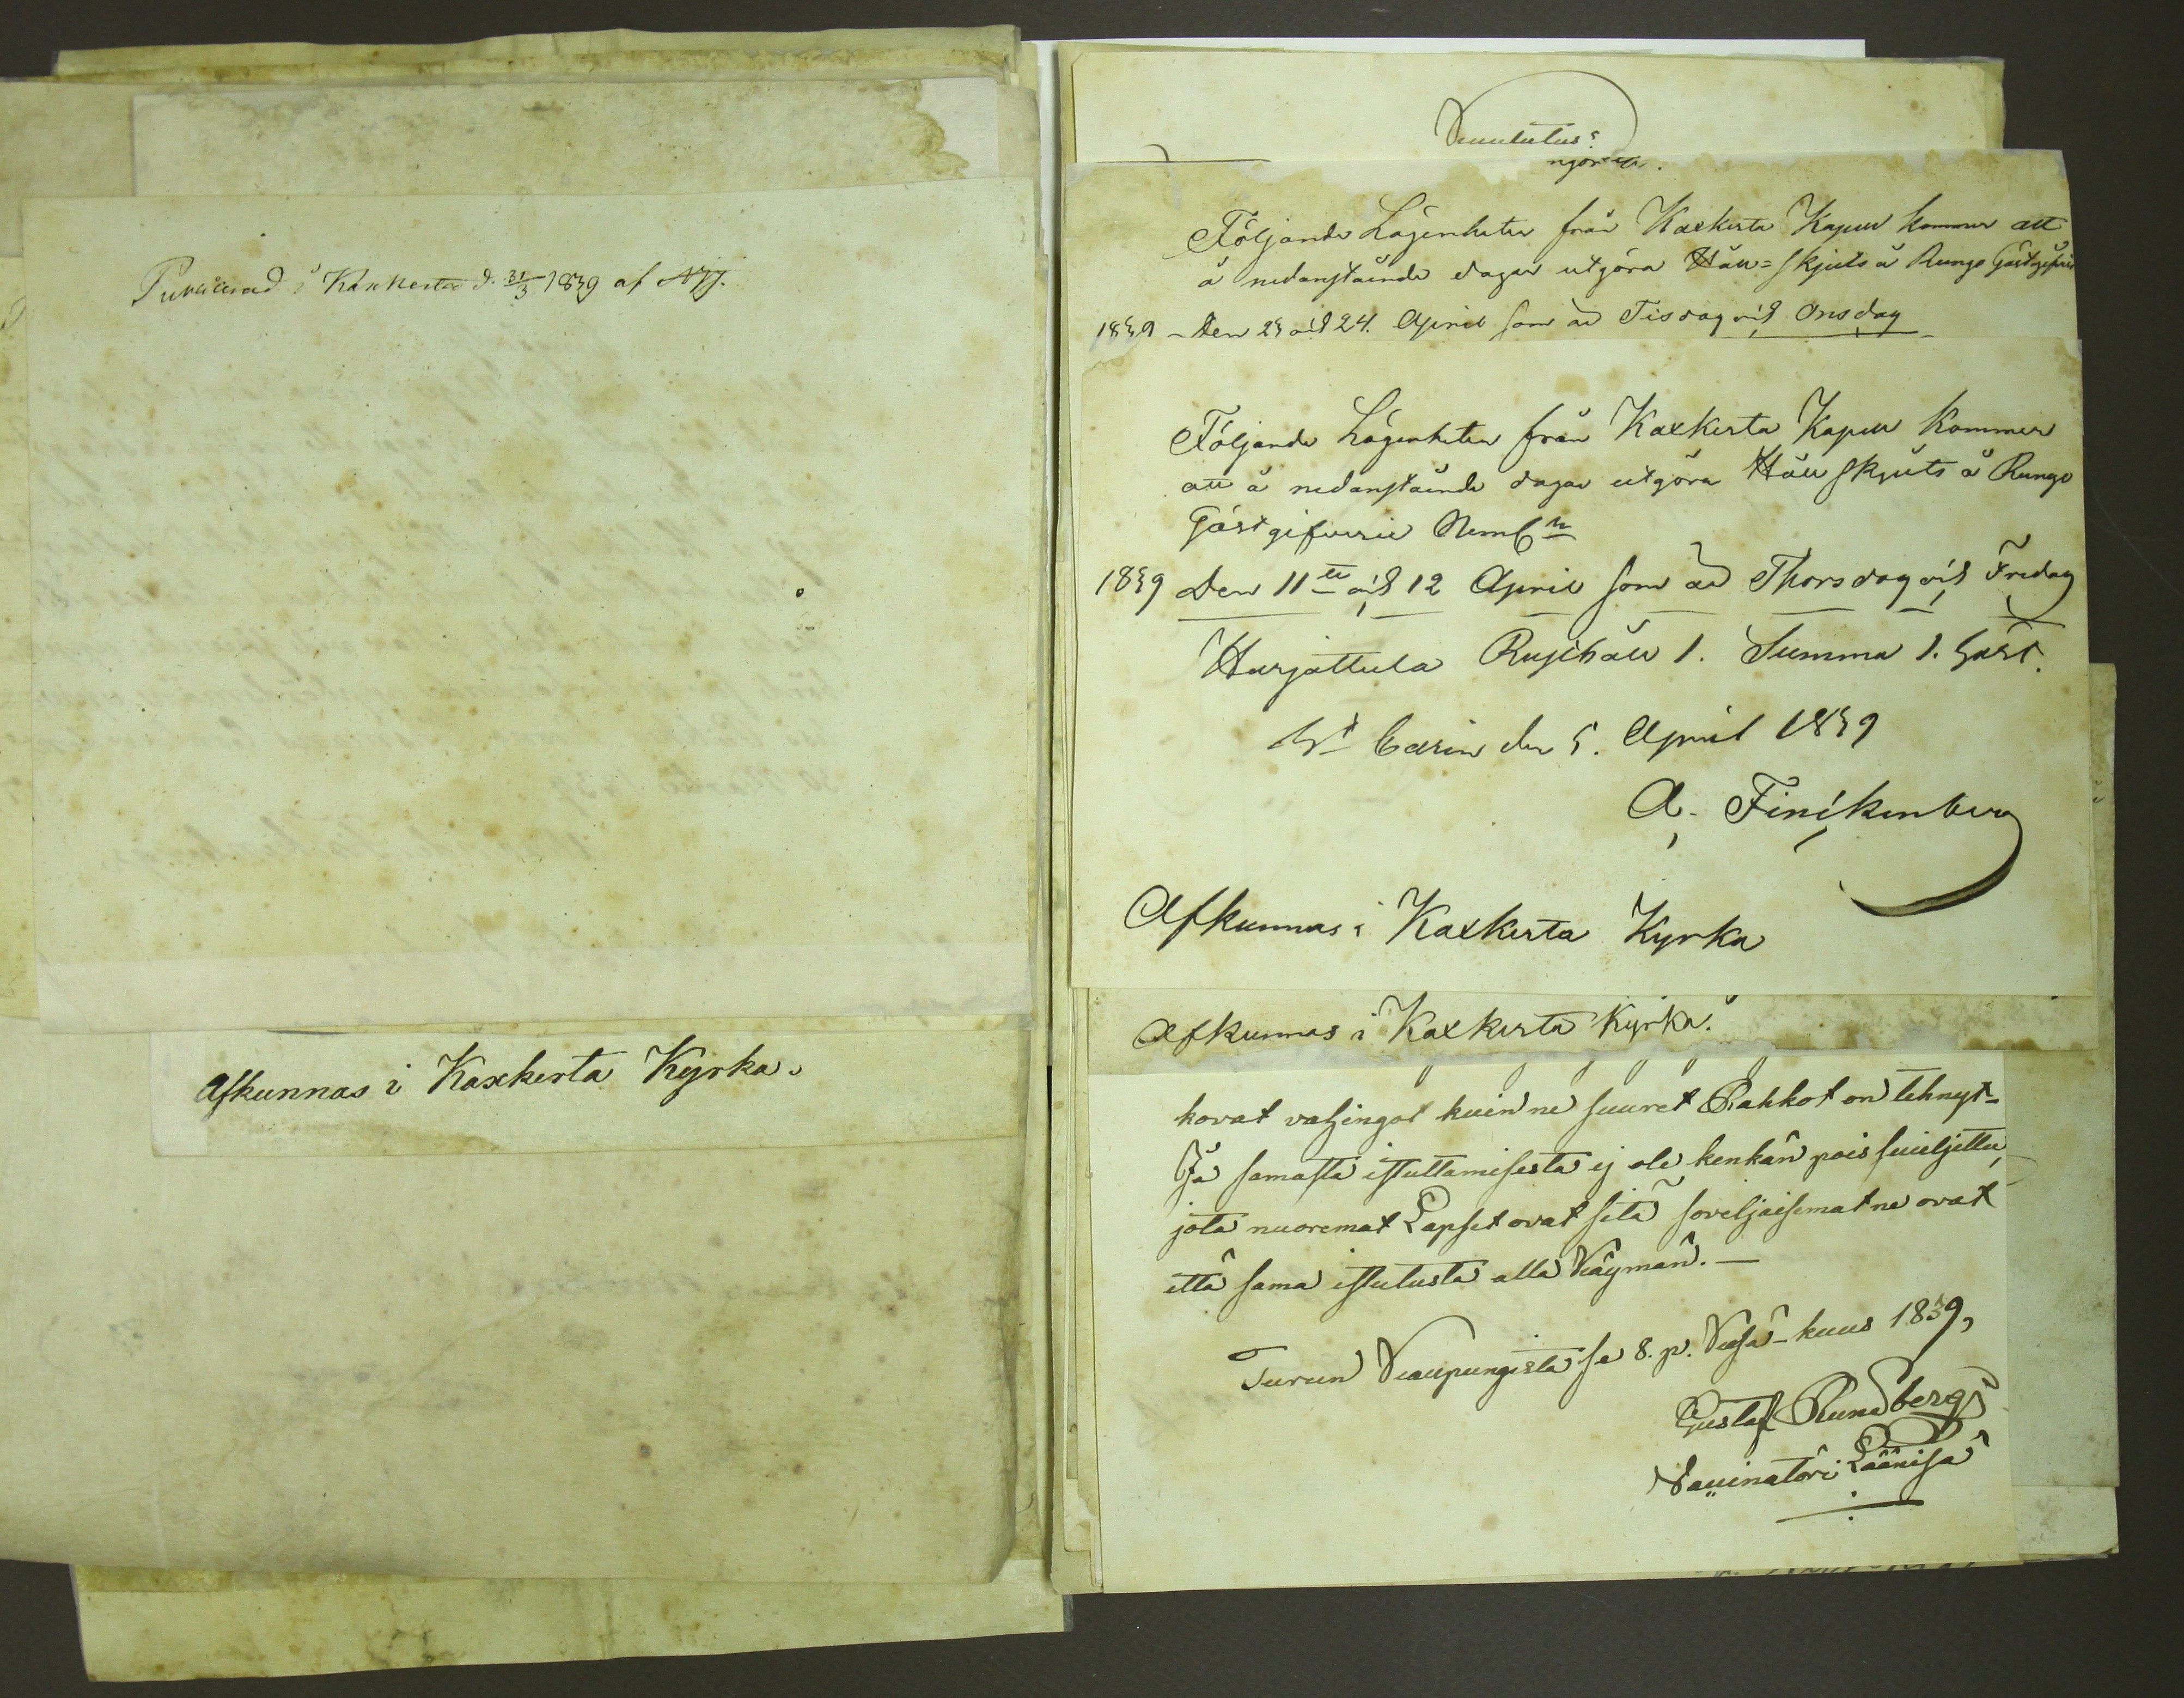 Publicerad i Kaxkerta d. 31/3 1839 af
Afkunnas i Kaxkerta Kyrka.
Kuulutus:
Följande Lägenheter från Kaxkerta Kapell kommer att
å nedanstående dagar utgöra Håll=skjuts å Runga Gästgifveri
1839 - Den 23 och 24. April som är Tisdag och Onsdag
Följande Lägenheter från Kaxkerta Kapell kommer
att å nedanstående dagar utgöra Håll skjuts å Runga
Gästgifverie Neml:n
1839 Den 11te och 12 April som är Thorsdag och Fredag
Harjattula 1. Summa 1. häst.
St Carin den 5. April 1839
A. Finckenberg
Afkunnas i Kaxkerta Kyrka
Afkunnas i Kaxkerta Kyrka.
kovat vahingot kuin ne suuret Rakkot on tehnyt-
Ja samasta istuttamisesta ej ole kenkän pois suieljettu,
jota nuoremat Lapset ovat sitä soveljaisemat ne ovat
että sama istutusta alla Käymän. —
Turun Kaupungista se 8. p. Kesä-kuus 1839,
Gustaf Rundberg
Läänisä